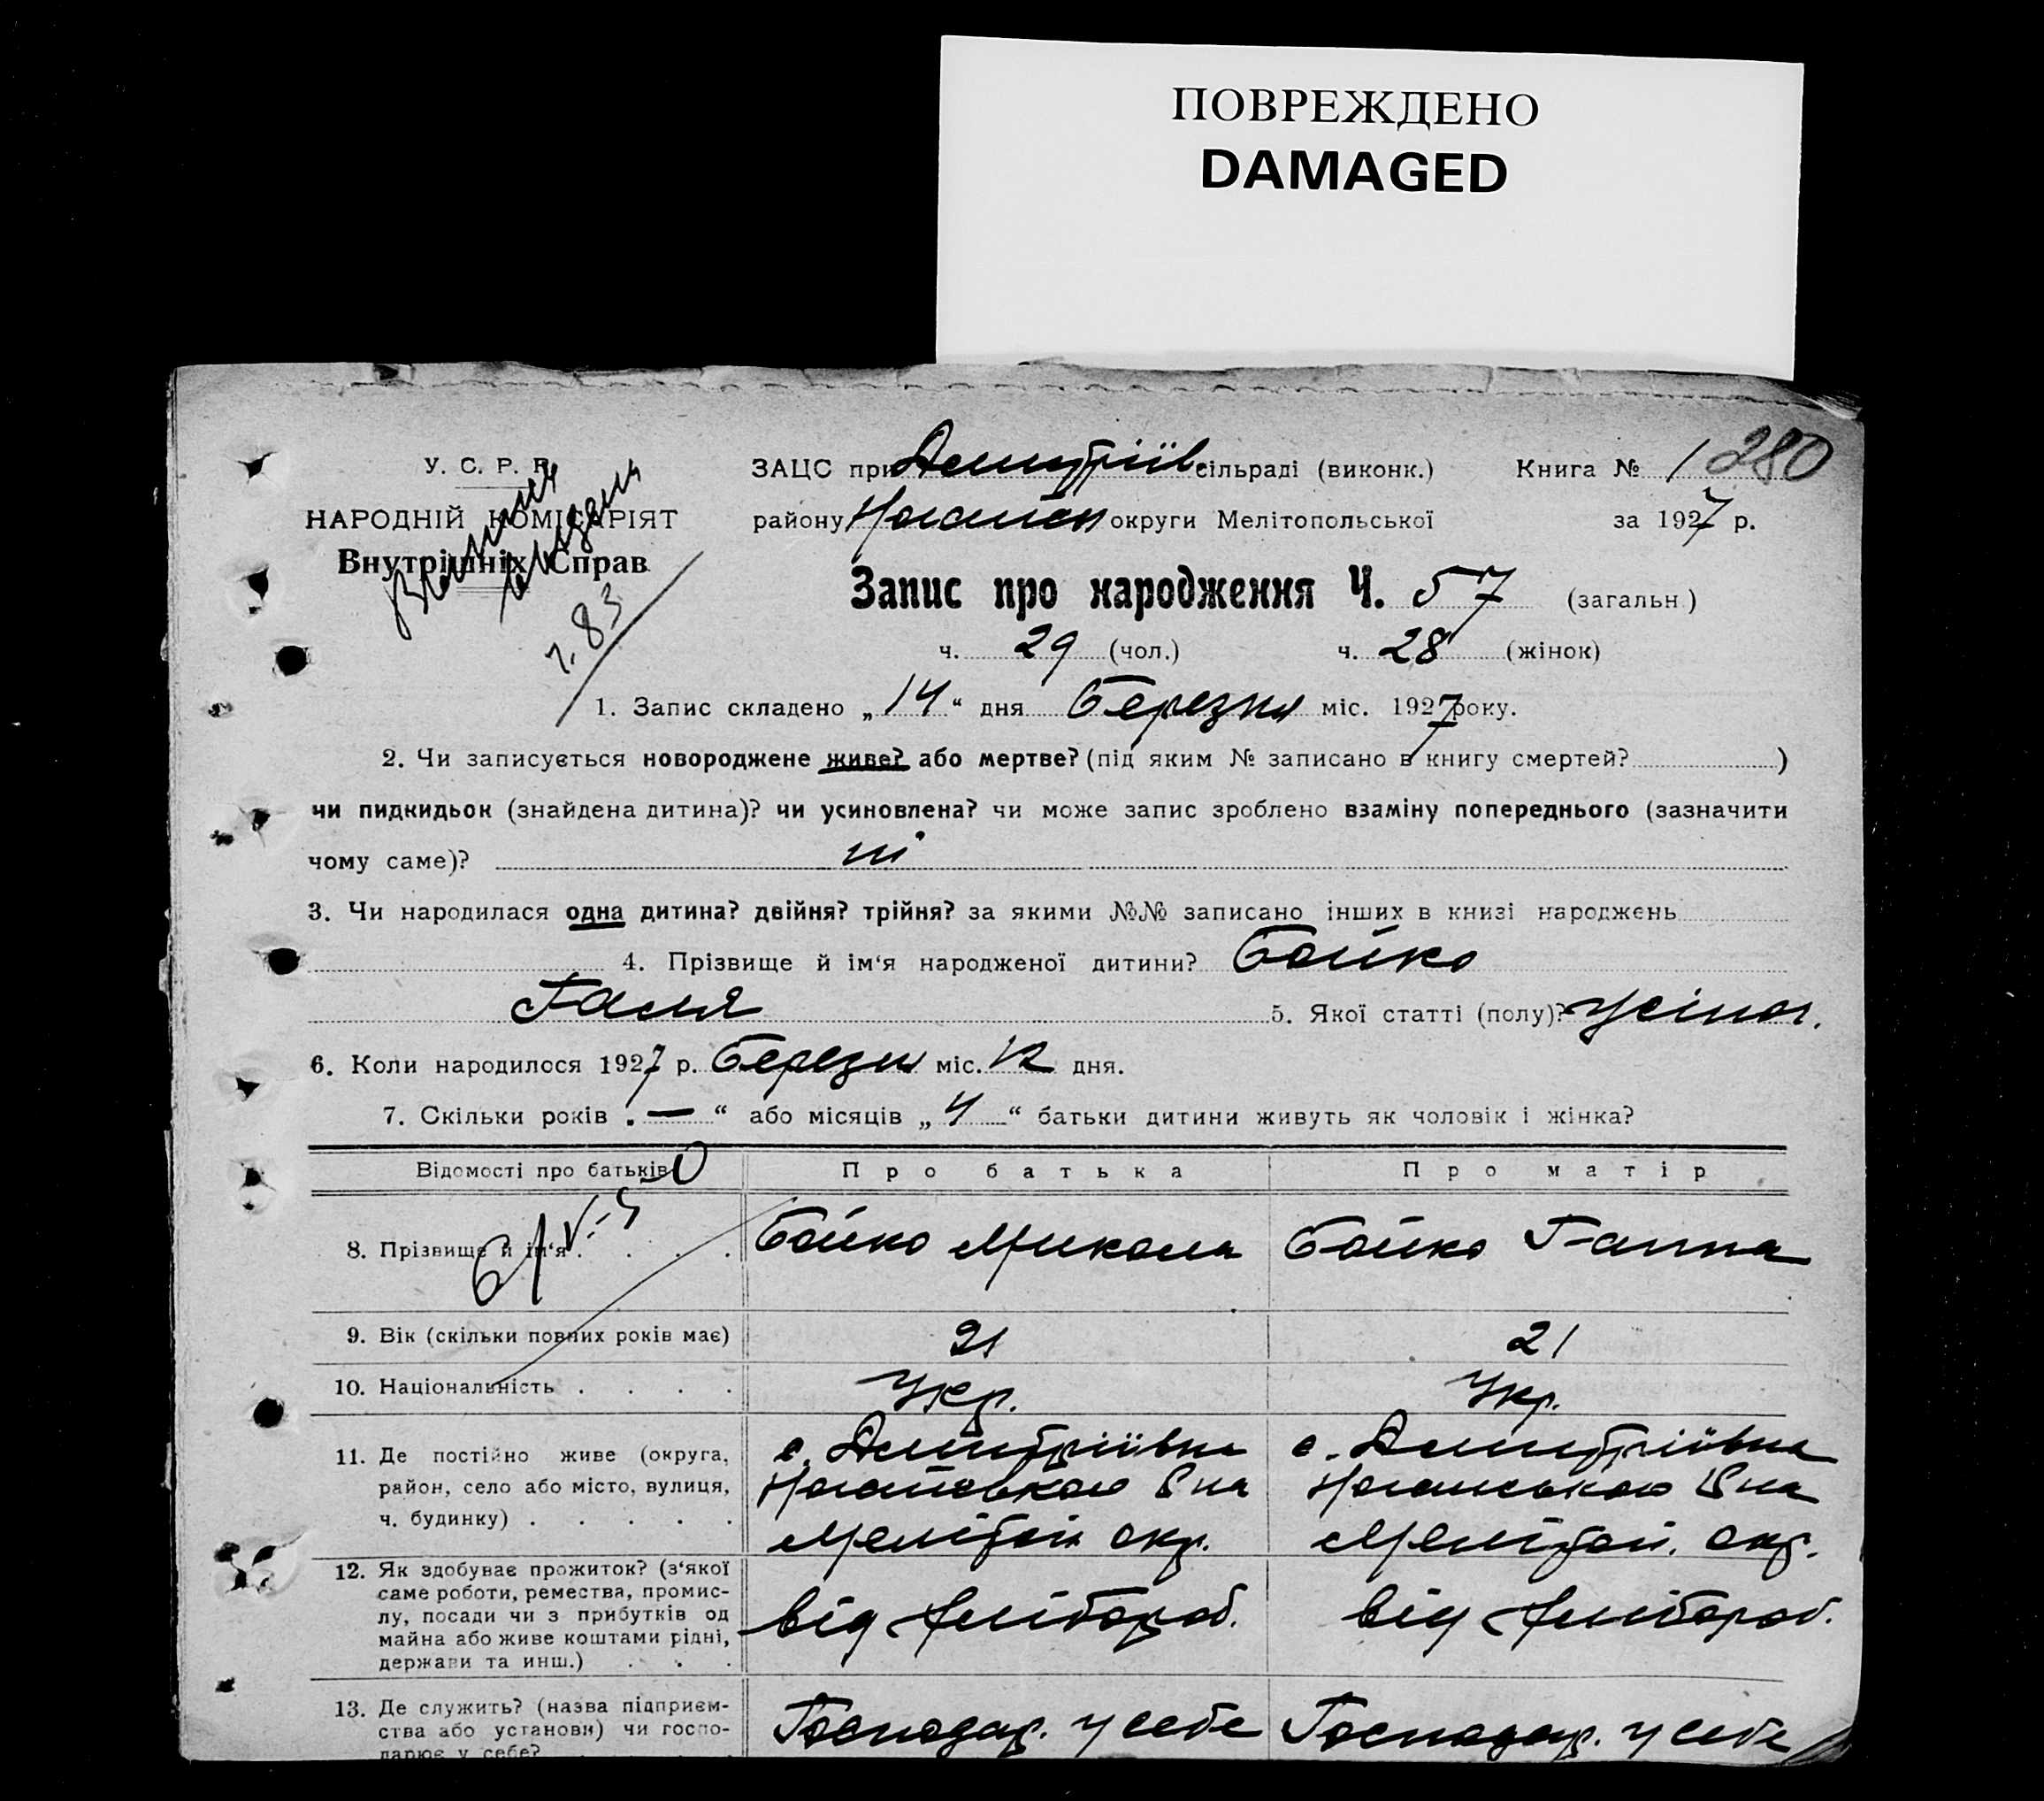 ПОВРЕЖДЕНО
DAMAGED
У. С. Р. Р.
НАРОДНІЙ КОМІСАРІЯТ
Внутрішніх Справ
ч. 83
ЗАЦС при Дмитріїв сільраді (виконк.) Книга № 1 280
району Ногайськ округи Мелітопольської за 1927 р.
Запис про народження Ч. 57 (загальн.)
ч. 29 (чол.) ч. 28 (жінок)
1. Запис складено „14“ дня Березня міс. 1927 року.
2. Чи записується новороджене живе? або мертве? (під яким № записано в книгу смертей? )
чи пидкидьок (знайдена дитина)? чи усиновлена? чи може запис зроблено взаміну попереднього (зазначити
чому саме)? ні
3. Чи народилася одна дитина? двійня? трійня? за якими №№ записано інших в книзі народжень
4. Прізвище й ім‘я народженої дитини? Бойко
Галя 5. Якої статті (полу)? жіноч.
6. Коли народилося 1927 р. Березня міс. 12 дня.
7. Скільки років „—“ або місяців „4“ батьки дитини живуть як чоловік і жінка?
Відомості про батьків Про батька Про матір
8. Прізвище й ім‘я . . . . Бойко Микола Бойко Ганна
9. Вік (скільки повних років має) 21 21
10. Національність . . . . Укр. Укр.
11. Де постійно живе (округа, с. Дмитріївка с. Дмитріївка
район, село або місто, вулиця, Ногайського Р-на Ногайського Р-на
ч. будинку) . . . . . Мелітоп. окр. Мелітоп. окр.
12. Як здобуває прожиток? (з‘якої
саме роботи, ремества, промис-
лу, посади чи з прибутків од від хлібороб. від хлібороб.
майна або живе коштами рідні,
держави та инш.) . . .
13. Де служить? (назва підприєм- Господар. у себе Господар. у себе
ства або установи) чи госпо-
дарює у себе?